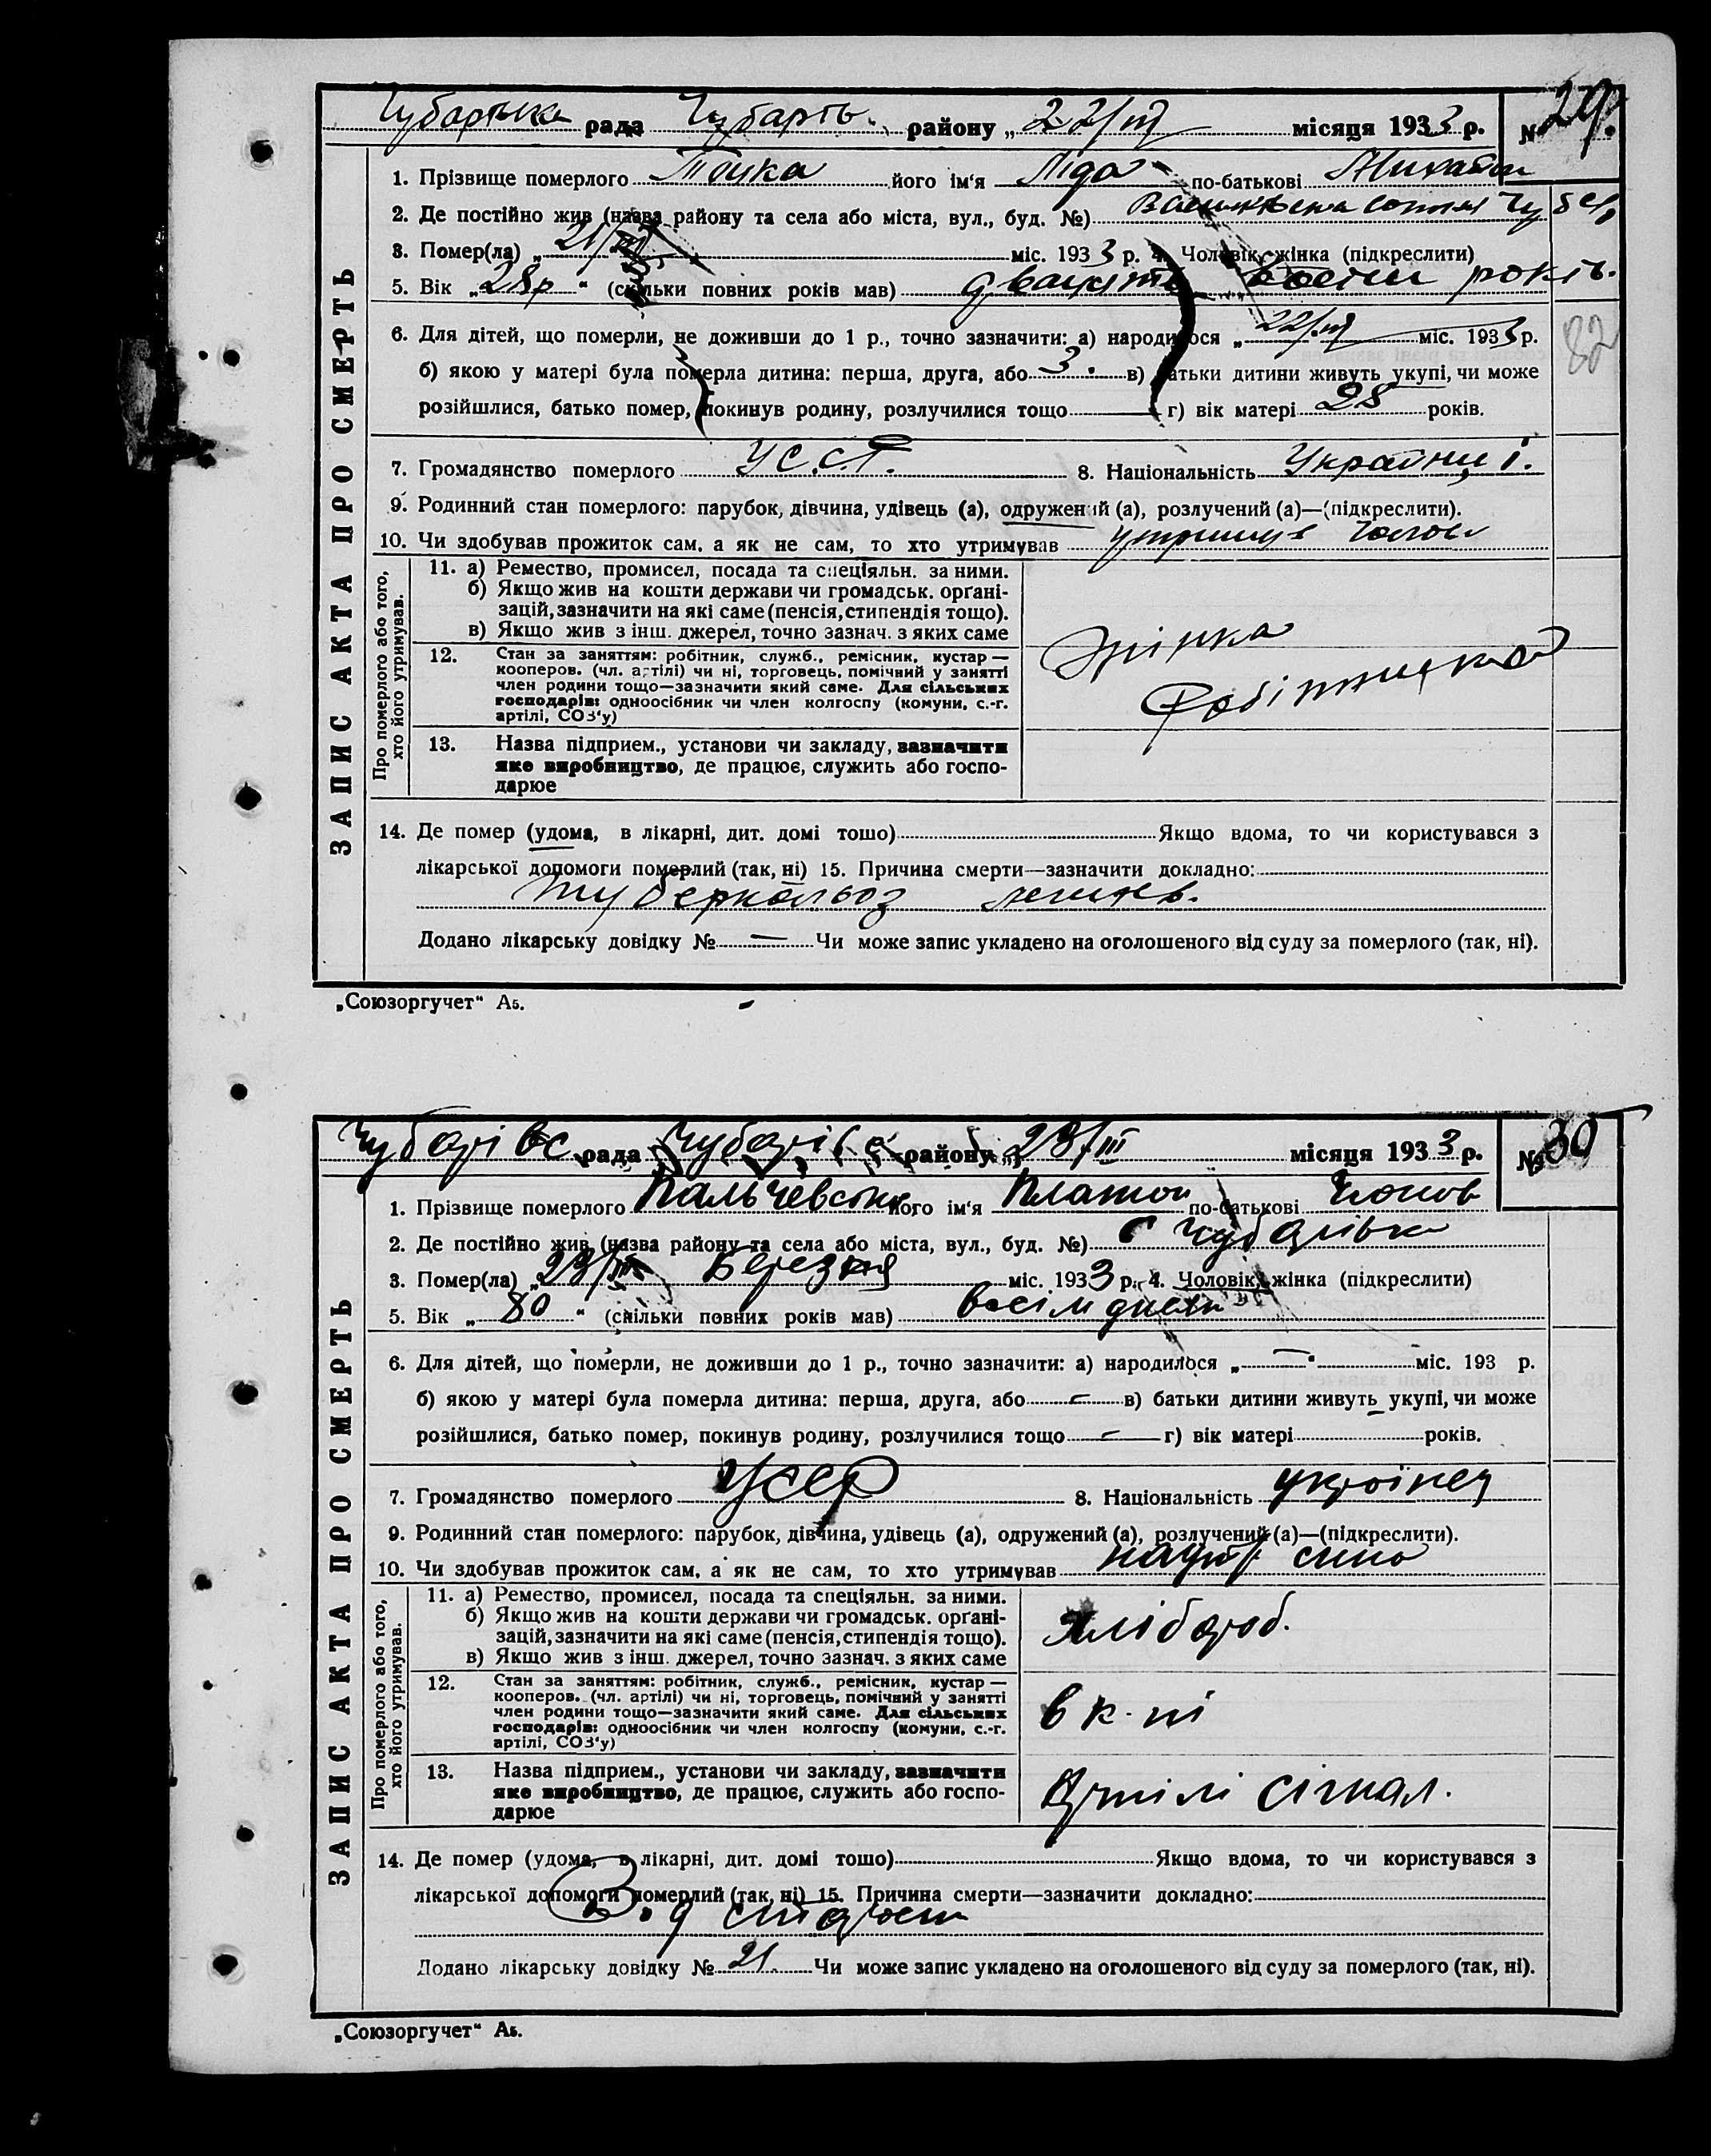 рада Чубарів. району „22/III місяця 1933 р. № 29.
ЗАПИС АКТА ПРО СМЕРТЬ
1. Прізвище померлого його ім'я Ліда по-батькові
2. Де постійно жив (назва району та села або міста, вул., буд. №)
3. Помер(ла) „21/III міс. 1933 р. 4. Чоловік, жінка (підкреслити)
5. Вік „28р“ (скільки повних років мав) двацять вісім років.
82
6. Для дітей, що померли, не доживши до 1 р., точно зазначити: а) народилося „22/III міс. 1933 р.
б) якою у матері була померла дитина: перша, друга, або 3. в) батьки дитини живуть укупі, чи може
розійшлися, батько помер, покинув родину, розлучилися тощо — г) вік матері 28 років.
7. Громадянство померлого У.С.С.Р. 8. Національність
9. Родинний стан померлого: парубок, дівчина, удівець (а), одружений (а), розлучений (а)—(підкреслити).
10. Чи здобував прожиток сам, а як не сам, то хто утримував
Про померлого або того, хто його утримував.
11. а) Ремество, промисел, посада та спеціяльн. за ними.
б) Якщо жив на кошти держави чи громадськ. органі-
зацій, зазначити на які саме (пенсія, стипендія тощо).
в) Якщо жив з інш. джерел, точно зазнач. з яких саме
12. Стан за заняттям: робітник, служб., ремісник, кустар —
кооперов. (чл. артілі) чи ні, торговець, помічний у занятті
член родини тощо—зазначити який саме. Для сільських
господарів: одноосібник чи член колгоспу (комуни, с.-г.
артілі, СОЗ'у)
13. Назва підприєм., установи чи закладу, зазначити
яке виробництво, де працює, служить або госпо-
дарює
14. Де помер (удома, в лікарні, дит. домі тошо) Якщо вдома, то чи користувався з
лікарської допомоги померлий (так, ні) 15. Причина смерти—зазначити докладно:
туберкольоз легинь.
Додано лікарську довідку № — Чи може запис укладено на оголошеного від суду за померлого (так, ні).
„Союзоргучет“ А5.
Чубарівс. рада Чубарівс району „23/III місяця 1933 р. № 30
ЗАПИС АКТА ПРО СМЕРТЬ
1. Прізвище померлого Пальчевськ його ім'я Платон по-батькові
2. Де постійно жив (назва району та села або міста, вул., буд. №) с Чубарівка
3. Помер(ла) „23/III Березня міс. 1933 р. 4. Чоловік, жінка (підкреслити)
5. Вік „80“ (скільки повних років мав) вісімдисят
6. Для дітей, що померли, не доживши до 1 р., точно зазначити: а) народилося „—“ міс. 193 р.
б) якою у матері була померла дитина: перша, друга, або — в) батьки дитини живуть укупі, чи може
розійшлися, батько помер, покинув родину, розлучилися тощо — г) вік матері років.
7. Громадянство померлого УСРР 8. Національність українец
9. Родинний стан померлого: парубок, дівчина, удівець (а), одружений (а), розлучений (а)—(підкреслити).
10. Чи здобував прожиток сам, а як не сам, то хто утримував сина
Про померлого або того, хто його утримував.
11. а) Ремество, промисел, посада та спеціяльн. за ними.
б) Якщо жив на кошти держави чи громадськ. органі-
зацій, зазначити на які саме (пенсія, стипендія тощо).
в) Якщо жив з інш. джерел, точно зазнач. з яких саме
хлібороб.
12. Стан за заняттям: робітник, служб., ремісник, кустар —
кооперов. (чл. артілі) чи ні, торговець, помічний у занятті
член родини тощо—зазначити який саме. Для сільських
господарів: одноосібник чи член колгоспу (комуни, с.-г.
артілі, СОЗ'у)
13. Назва підприєм., установи чи закладу, зазначити
яке виробництво, де працює, служить або госпо-
дарює
Артілі сігнал.
14. Де помер (удома, в лікарні, дит. домі тошо) Якщо вдома, то чи користувався з
лікарської допомоги померлий (так, ні) 15. Причина смерти—зазначити докладно:
старости
Додано лікарську довідку № 21. Чи може запис укладено на оголошеного від суду за померлого (так, ні).
„Союзоргучет“ А5.